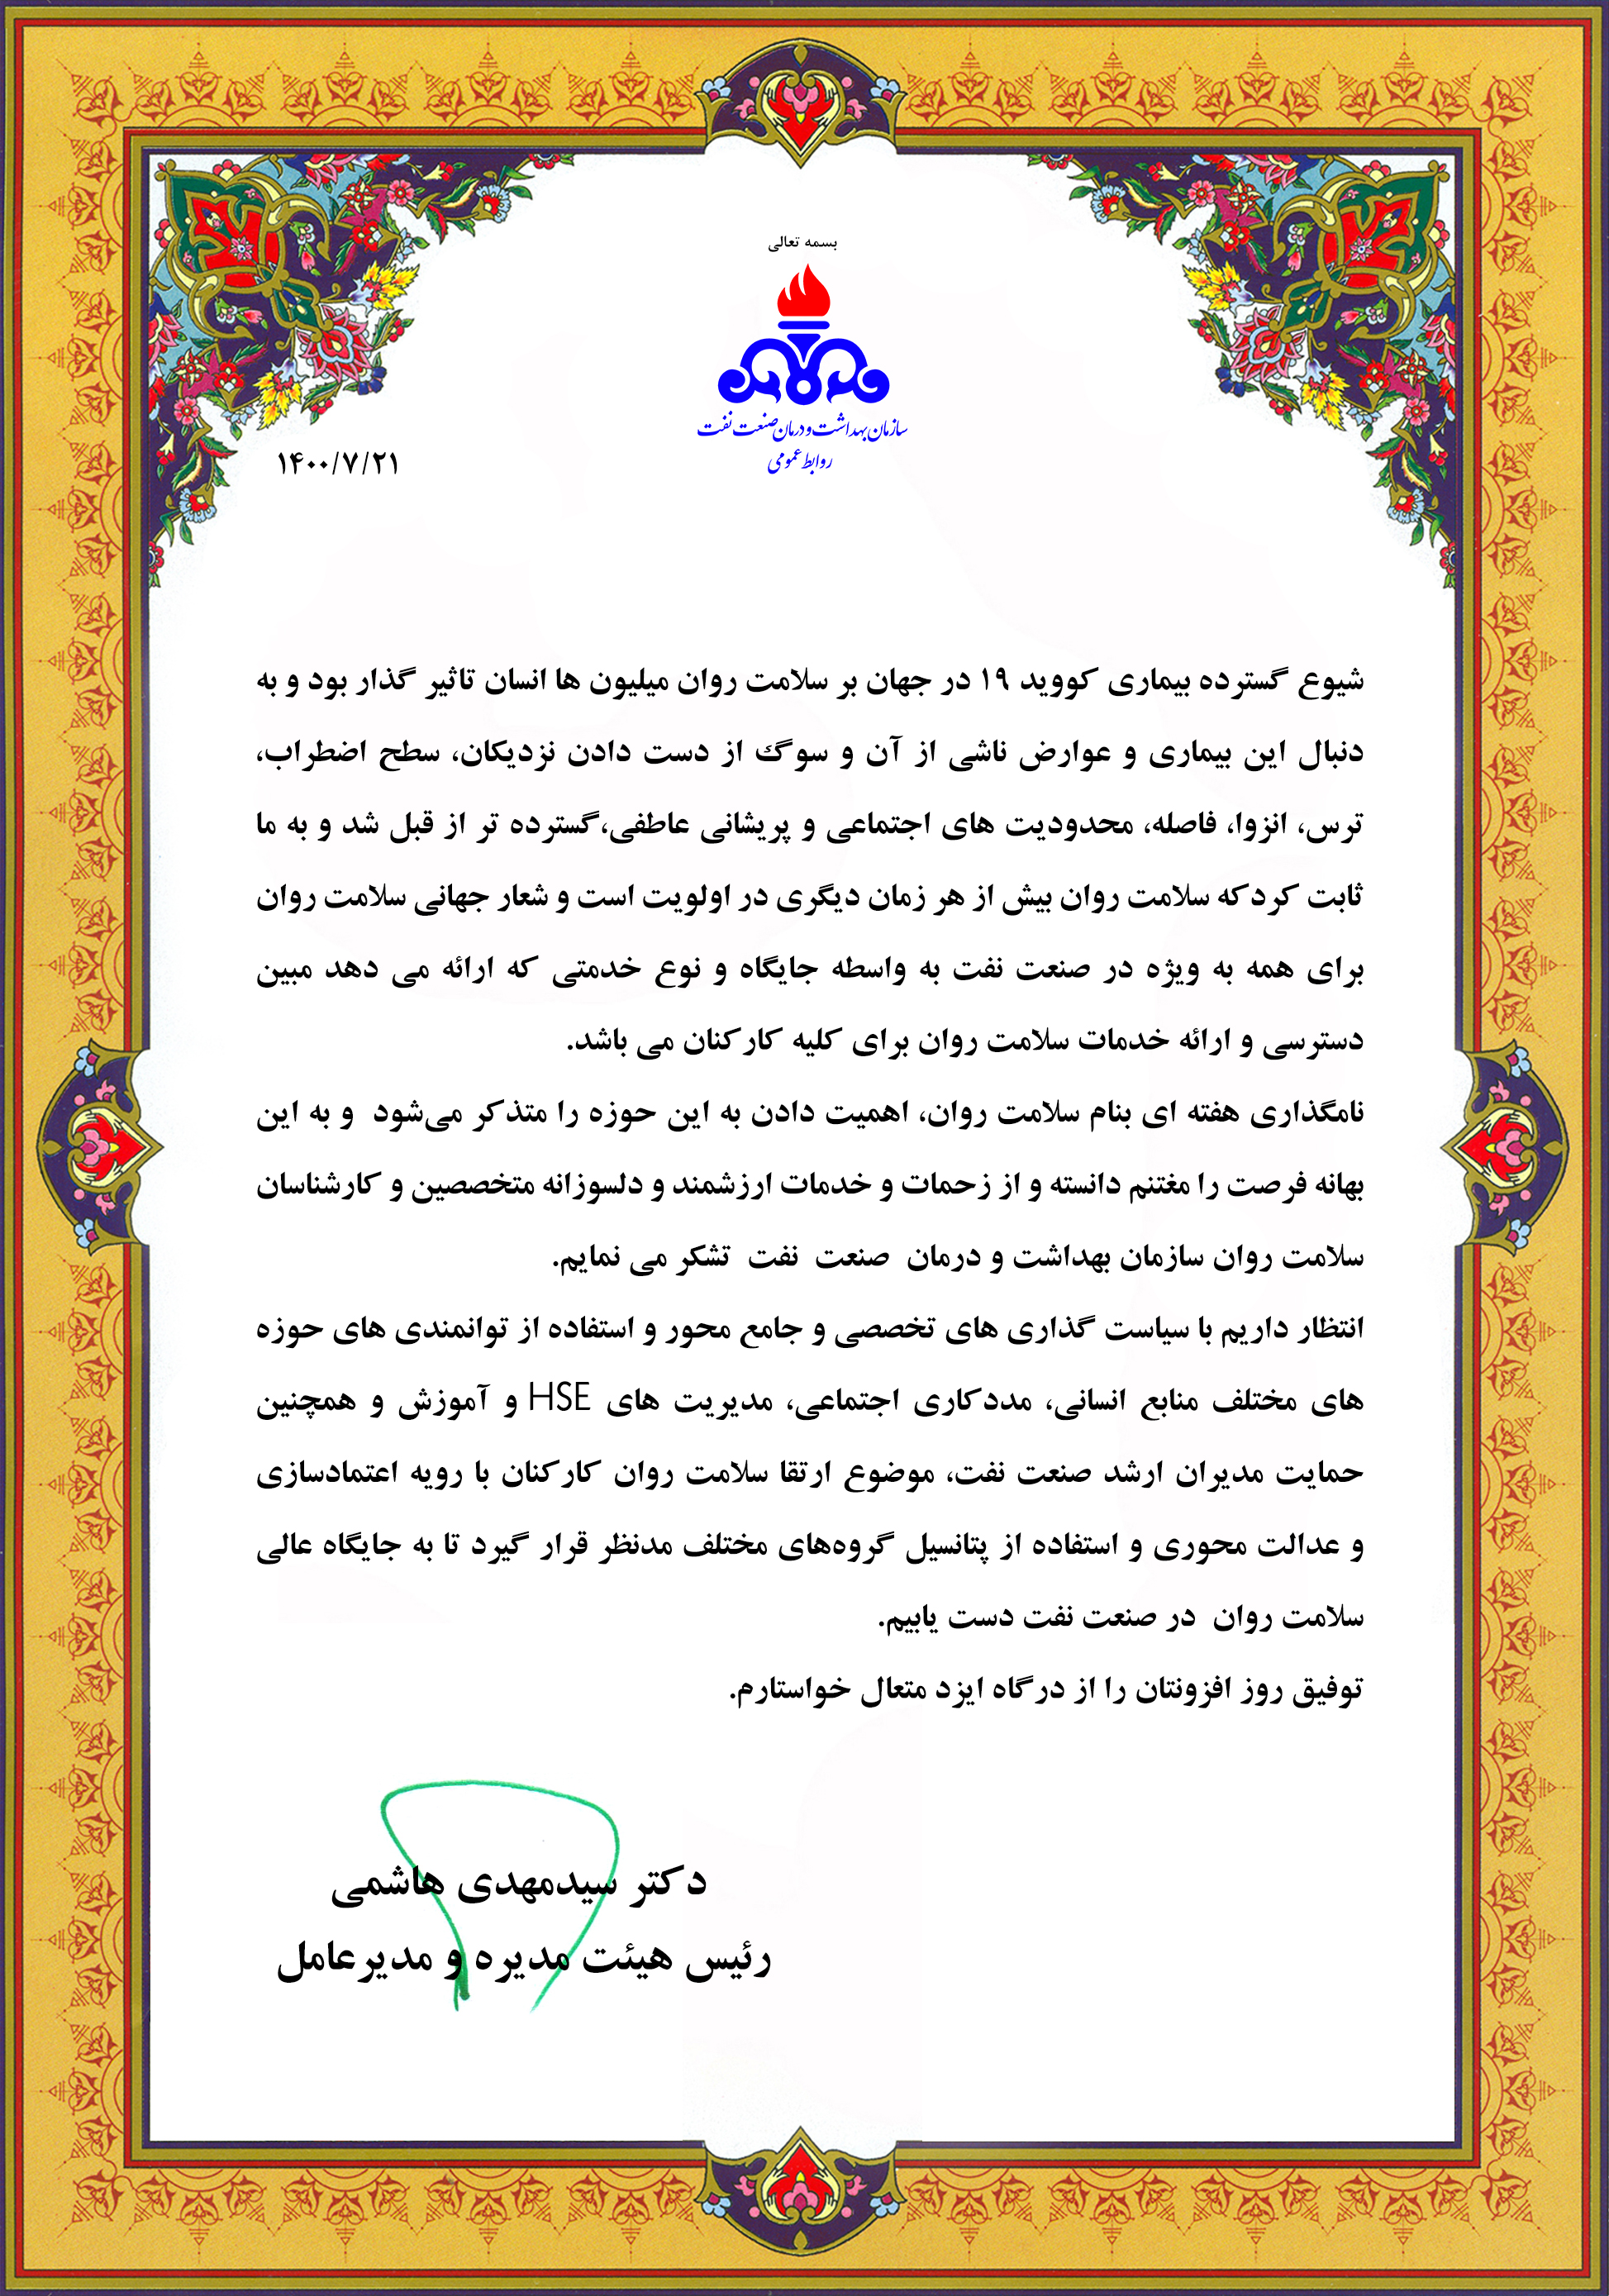 بسمه تعالی
سازمان بهداشت و درمان صنعت نفت
روابط عمومی
۱۴۰۰/۷/۲۱
شیوع گسترده بیماری کووید ۱۹ در جهان بر سلامت روان میلیون ها انسان تاثیر گذار بود و به
دنبال این بیماری و عوارض ناشی از آن و سوگ از دست دادن نزدیکان، سطح اضطراب،
ترس، انزوا، فاصله، محدودیت های اجتماعی و پریشانی عاطفی،گسترده تر از قبل شد و به ما
ثابت کردکه سلامت روان بیش از هر زمان دیگری در اولویت است و شعار جهانی سلامت روان
برای همه به ویژه در صنعت نفت به واسطه جایگاه و نوع خدمتی که ارائه می دهد مبین
دسترسی و ارائه خدمات سلامت روان برای کلیه کارکنان می باشد.
نامگذاری هفته ای بنام سلامت روان، اهمیت دادن به این حوزه را متذکر می‌شود و به این
بهانه فرصت را مغتنم دانسته و از زحمات و خدمات ارزشمند و دلسوزانه متخصصین و کارشناسان
سلامت روان سازمان بهداشت و درمان صنعت نفت تشکر می نمایم.
انتظار داریم با سیاست گذاری های تخصصی و جامع محور و استفاده از توانمندی های حوزه
های مختلف منابع انسانی، مددکاری اجتماعی، مدیریت های HSE و آموزش و همچنین
حمایت مدیران ارشد صنعت نفت، موضوع ارتقا سلامت روان کارکنان با رویه اعتمادسازی
و عدالت محوری و استفاده از پتانسیل گروه‌های مختلف مدنظر قرار گیرد تا به جایگاه عالی
سلامت روان در صنعت نفت دست یابیم.
توفیق روز افزونتان را از درگاه ایزد متعال خواستارم.
دکتر سیدمهدی هاشمی
رئیس هیئت مدیره و مدیرعامل